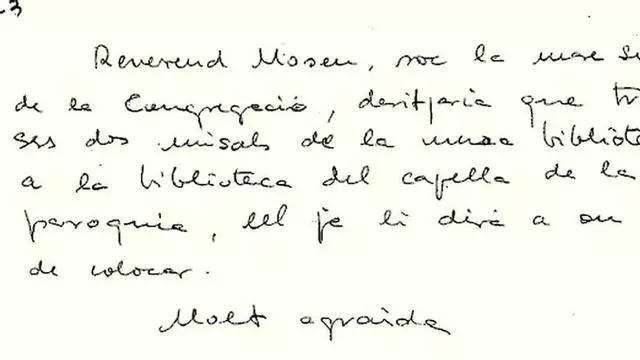 Reverend Mosen, soc la mare su
de la Congregació, desitjaria que tr
ses dos misals de la meva bibliote
a la biblioteca del capella de la
paroquia, ell ja li dirà a on
de colocar.
Molt agraida